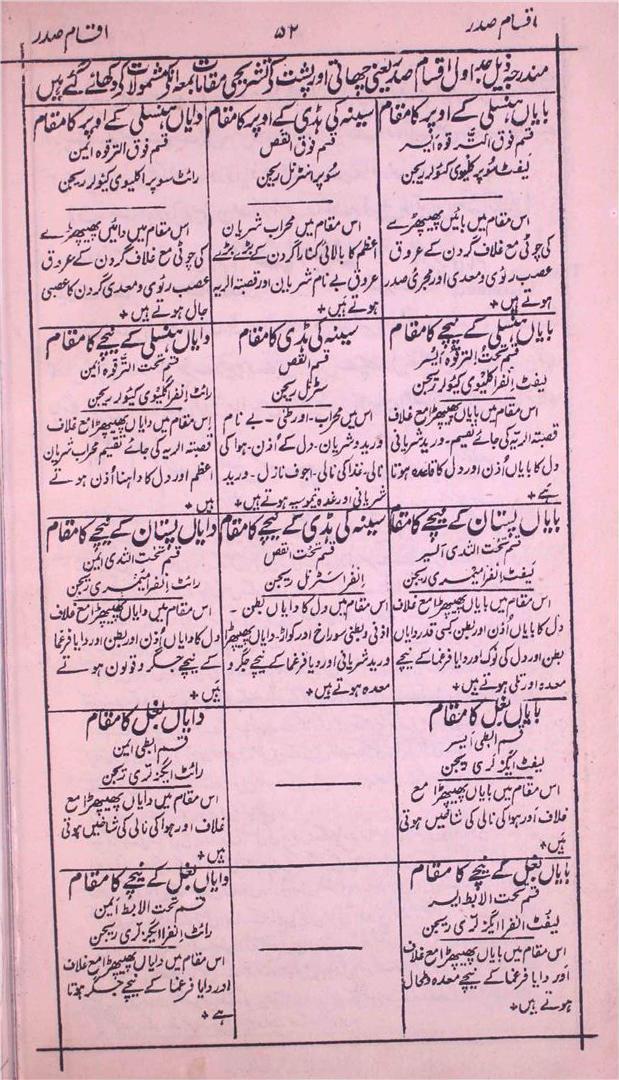 اقسام صدر
۵۲
اقسام صدر
مندرجہ ذیل جداول اقسام صدر یعنی چھاتی اور پشت کی تشریحی مقامات بمعہ انکے مشمولات کی دکھائے گئے ہیں
بایاں ہنسلی کے اوپر کا مقام
قسم فوق الترقوہ ایسر
لیفٹ سوپر کلیوی کیولر ریجن
اس مقام میں بائیں پھیپھڑے
کی چوٹی مع غلاف گردن کے عروق
عصب رئوی و معدی اور مجری صدر
ہوتے ہیں +
سینہ کی ہڈی کے اوپر کا مقام
قسم فوق القص
سوپر اسٹرنل ریجن
اس مقام میں محراب شریان
اعظم کا بالائی کنارا گردن کے بڑے بڑے
عروق بے نام شریان اور قصبۃ الریہ
ہوتے ہیں +
دایاں ہنسلی کے اوپر کا مقام
قسم فوق الترقوہ ایمن
رائٹ سوپر اکلیوی کیولر ریجن
اس مقام میں دائیں پھیپھڑے
کی چوٹی مع غلاف گردن کے عروق
عصب رئوی و معدی گردن کا عصبی
جال ہوتے ہیں +
بایاں ہنسلی کے نیچے کا مقام
قسم تحت الترقوہ ایسر
لیفٹ انفرا کلیوی کیولر ریجن
اس مقام میں بایاں پھیپھڑا مع غلاف
قصبتہ الریہ کی جائے تقسیم۔ ورید شریانی
دل کا بایاں اُذن اور دل کا قاعدہ ہوتا
ہے +
سینہ کی ہڈی کا مقام
قسم القص
سٹرنل ریجن
اس میں محراب۔ اورطی۔ بے نام
ورید و شریان۔ دل کے اُذن۔ ہوا کی
نالی۔ غذا کی نالی۔ اجوف نازل۔ ورید
شریانی اور غدہ تیموسیہ ہوتے ہیں +
دایاں ہنسلی کے نیچے کا مقام
قسم تحت الترقوہ ایمن
رائٹ انفرا کلیوی کیولر ریجن
اس مقام میں دایاں پھیپھڑا مع غلاف
قصبتہ الریہ کی جائے تقسیم محراب شریان
اعظم اور دل کا داہنا اُذن ہوتے
ہیں +
بایاں پستان کے نیچے کا مقام
قسم تحت الثدی الیسر
لیفٹ انفرا میمری ریجن
اس مقام میں بایاں پھیپھڑا مع غلاف
دل کا بایاں اُذن اور بطن کسی قدر دایاں
بطن اور دل کی نوک اور دایا فرغما کے نیچے
معدہ اور تلی ہوتے ہیں +
سینہ کی ہڈی کے نیچے کا مقام
قسم تحت القص
انفرا سٹرنل ریجن
اس مقام میں دل کا دایاں بطن۔
اذنی و بطنی سوراخ اور کواڑ۔ دایاں پھیپھڑا
ورید شریانی اور دیا فرغما کے نیچے جگر و
معدہ ہوتے ہیں +
دایاں پستان کے نیچے کا مقام
قسم تحت الثدی ایمن
رائٹ انفرا میمری ریجن
اس مقام میں دایاں پھیپھڑا مع غلاف
دل کا دایاں اُذن اور بطن اور دیا فرغما
کے نیچے جگر و قولون ہوتے
ہیں +
بایاں بغل کا مقام
قسم ابطی ایسر
لیفٹ ایگزلری ریجن
اس مقام میں بایاں پھیپھڑا مع
غلاف اور ہوا کی نالی کی شاخیں ہوتی
ہیں +
دایاں بغل کا مقام
قسم ابطی ایمن
رائٹ ایگزلری ریجن
اس مقام میں دایاں پھیپھڑا مع
غلاف اور ہوا کی نالی کی شاخیں ہوتی
ہیں +
بایاں بغل کے نیچے کا مقام
قسم تحت الابط ایسر
لیفٹ انفرا ایگزلری ریجن
اس مقام میں بایاں پھیپھڑا مع غلاف
اور دایا فرغما کے نیچے معدہ و طحال
ہوتے ہیں +
دایاں بغل کے نیچے کا مقام
قسم تحت الابط ایمن
رائٹ انفرا ایگزلری ریجن
اس مقام میں دایاں پھیپھڑا مع غلاف
اور دایا فرغما کے نیچے جگر ہوتا
ہے +